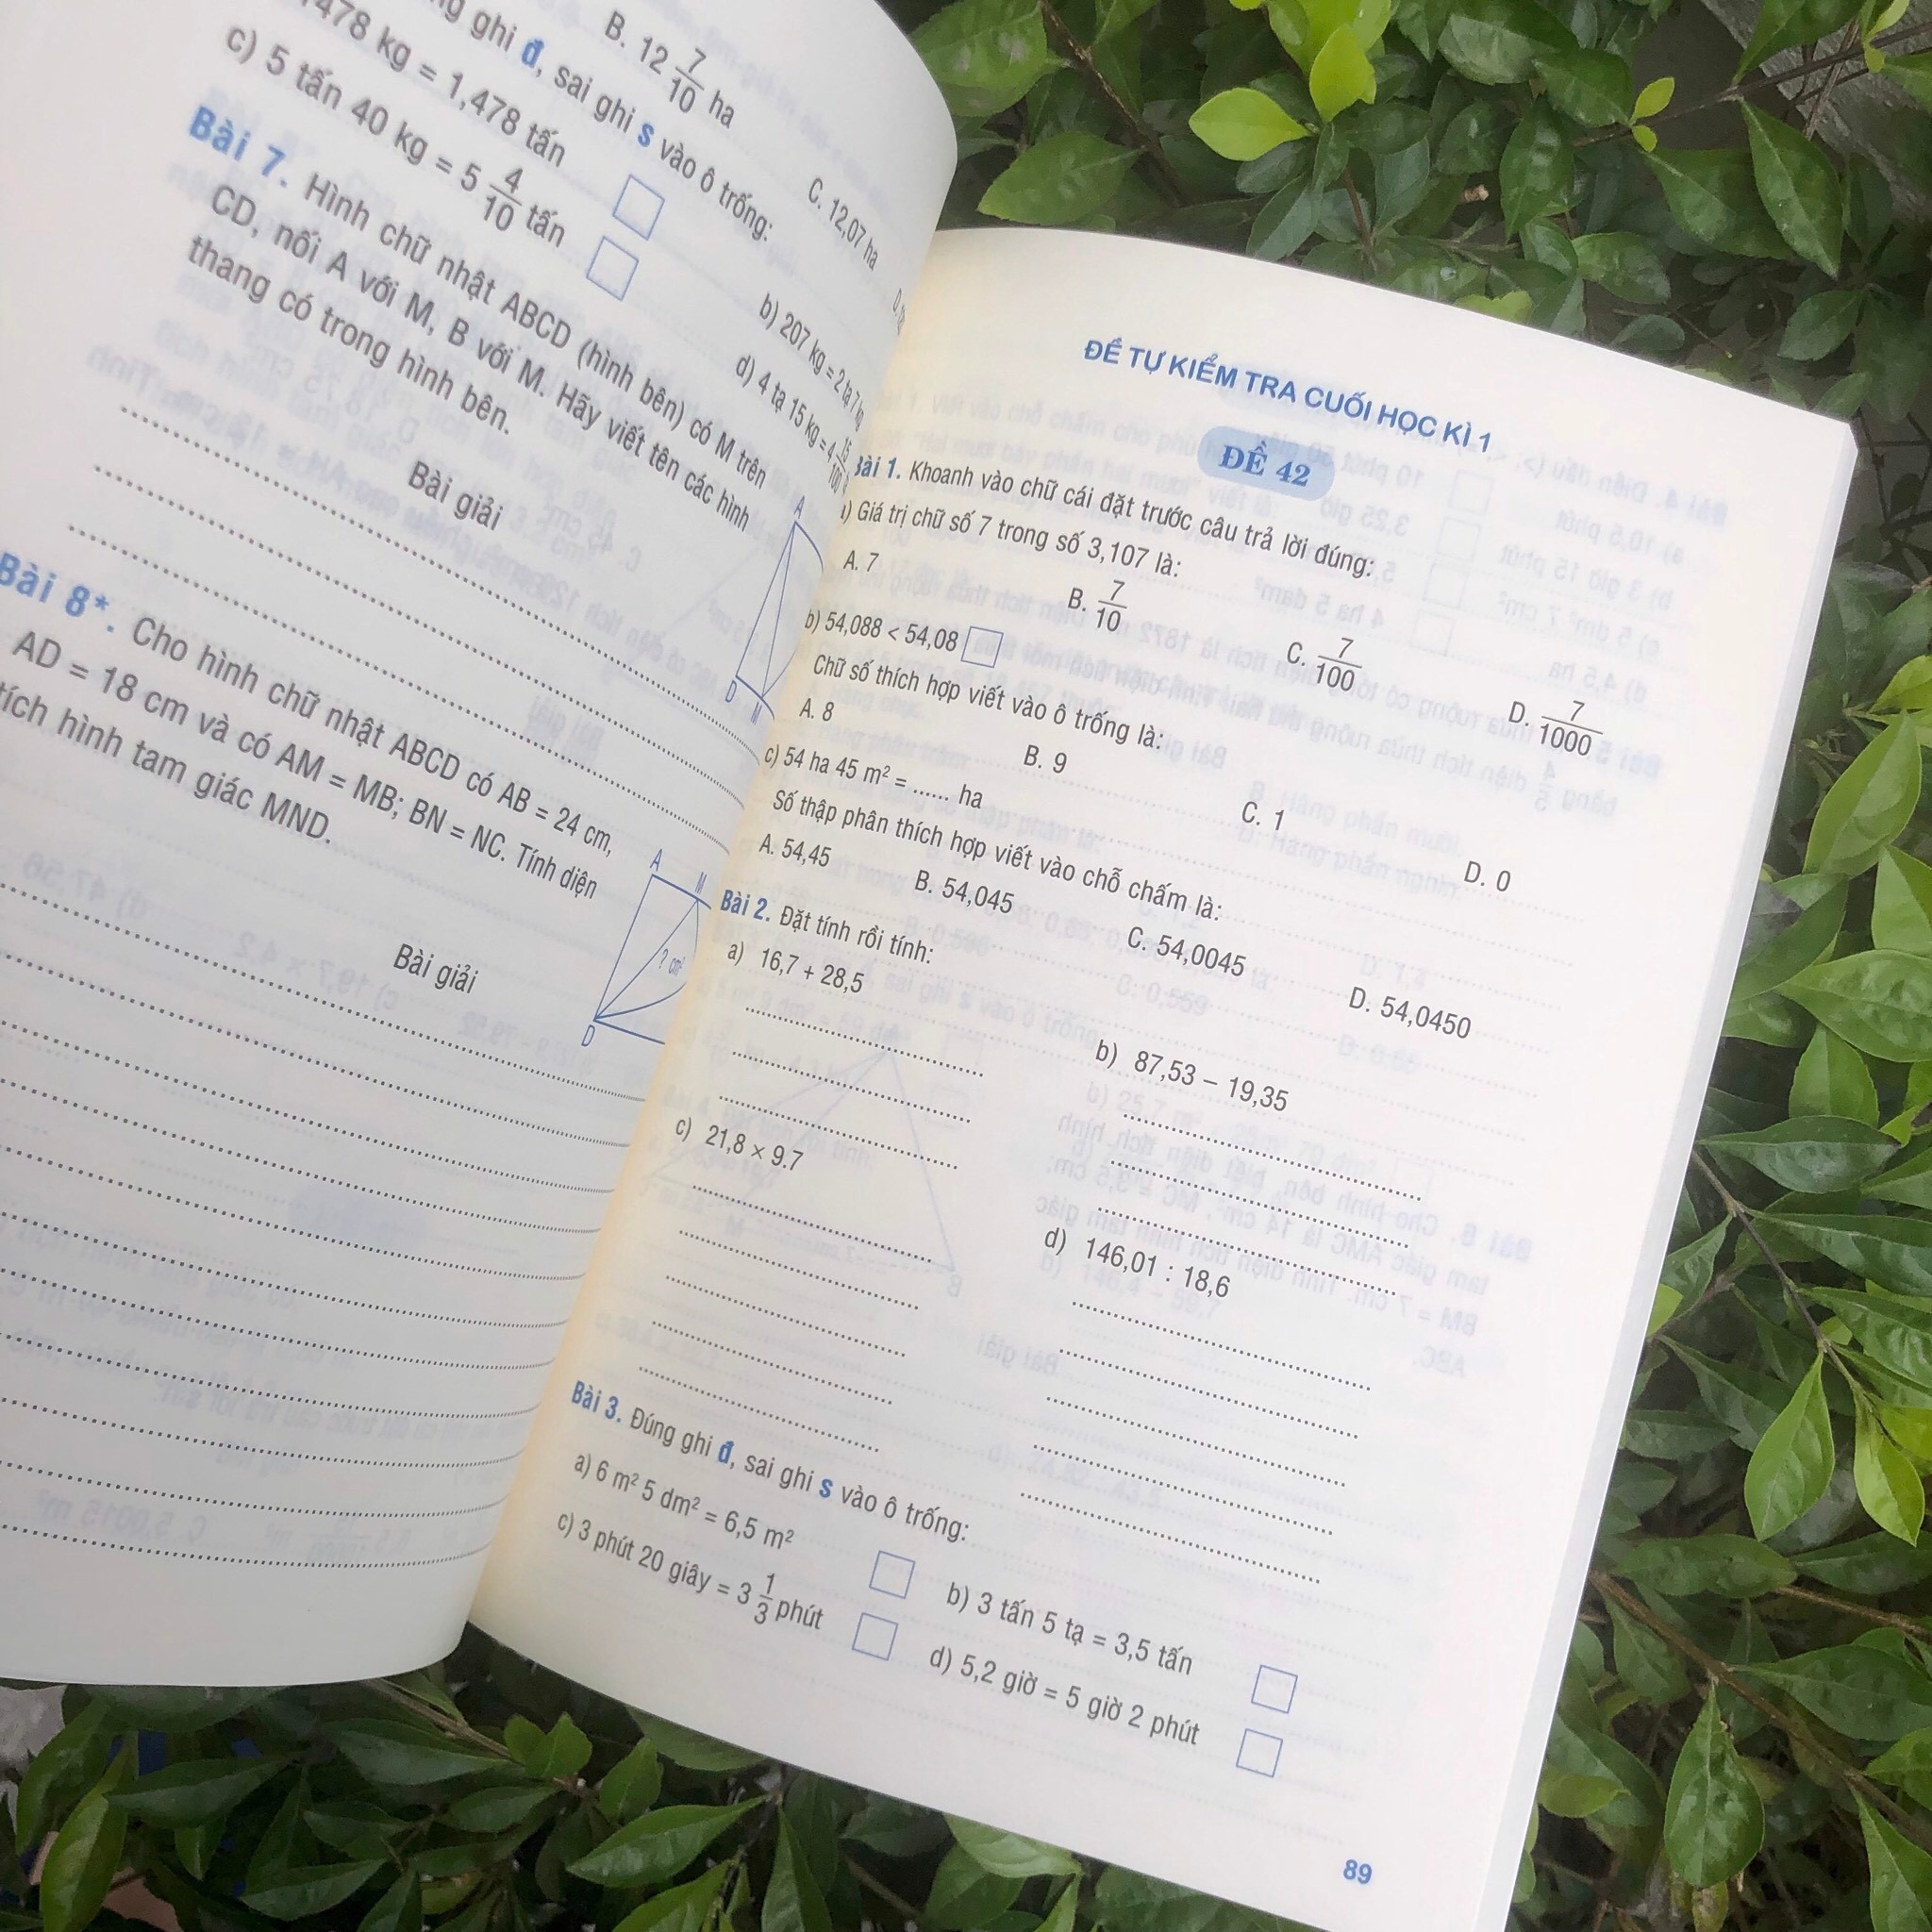 B. 12 7/10 ha
C. 12,07 ha
ghi đ, sai ghi s vào ô trống:
478 kg = 1,478 tấn
b) 207 kg = 2 tạ 7 kg
c) 5 tấn 40 kg = 5 4/10 tấn
d) 4 tạ 15 kg = 4 15/100
Bài 7. Hình chữ nhật ABCD (hình bên) có M trên
CD, nối A với M, B với M. Hãy viết tên các hình
thang có trong hình bên.
A
D
M
Bài giải
Bài 8*. Cho hình chữ nhật ABCD có AB = 24 cm,
AD = 18 cm và có AM = MB; BN = NC. Tính diện
tích hình tam giác MND.
A
M
? cm²
D
Bài giải
ĐỀ TỰ KIỂM TRA CUỐI HỌC KÌ 1
ĐỀ 42
Bài 1. Khoanh vào chữ cái đặt trước câu trả lời đúng:
a) Giá trị chữ số 7 trong số 3,107 là:
A. 7
B. 7/10
C. 7/100
D. 7/1000
b) 54,088 < 54,08 □
Chữ số thích hợp viết vào ô trống là:
A. 8
B. 9
C. 1
D. 0
c) 54 ha 45 m² = ...... ha
Số thập phân thích hợp viết vào chỗ chấm là:
A. 54,45
B. 54,045
C. 54,0045
D. 54,0450
Bài 2. Đặt tính rồi tính:
a) 16,7 + 28,5
b) 87,53 – 19,35
c) 21,8 × 9.7
d) 146,01 : 18,6
Bài 3. Đúng ghi đ, sai ghi s vào ô trống:
a) 6 m² 5 dm² = 6,5 m²
b) 3 tấn 5 tạ = 3,5 tấn
c) 3 phút 20 giây = 3 1/3 phút
d) 5,2 giờ = 5 giờ 2 phút
89